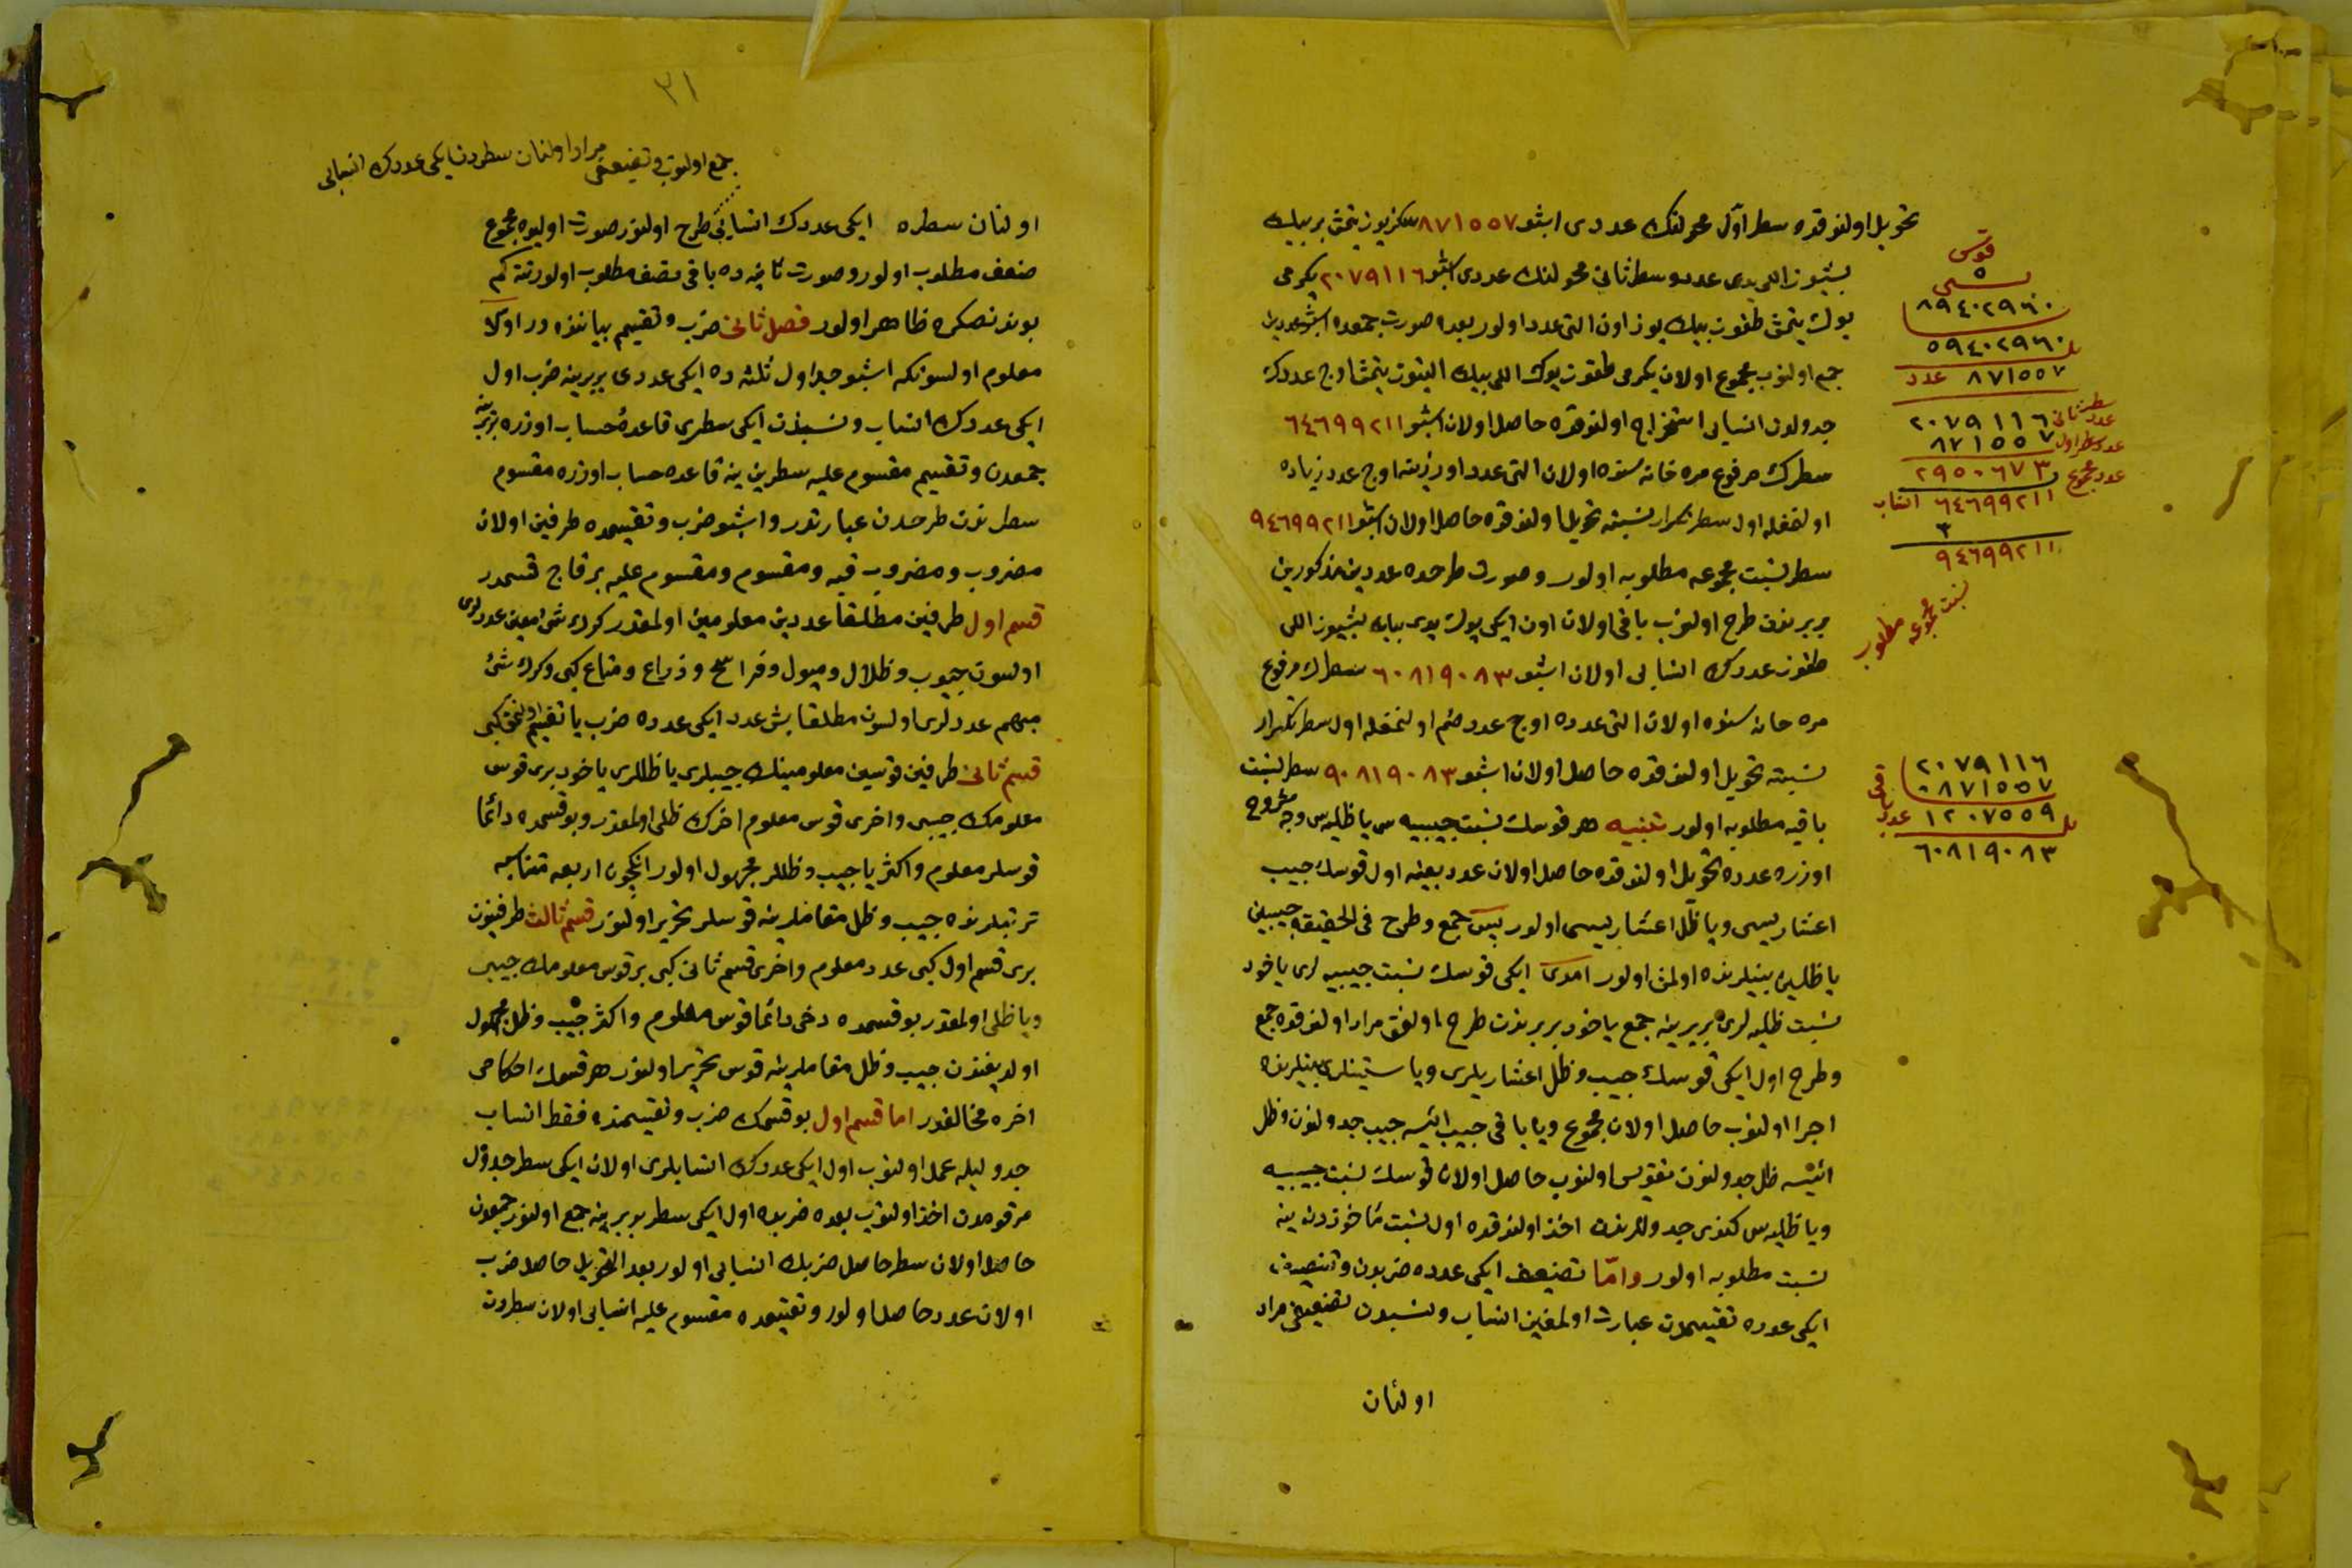 تحويل اولنوقده سطر اول محولنك عددی اشبو ٨٧١٥٥٧ سكزيوز يتمش بر بيك
بشيوز اللی يدی عدد و سطر ثانی محولنك عددی اشبو ٢٠٧٩١١٦ يكرمی
يوك يتمش طقوز بيك يوز اون التی عدد اولور بعده صورت جمعده اشبو عددين
جمع اولنوب مجموع اولان يكرمی طقوز يوك اللی بيك التيوز يتمش اوج عددك
جدولدن انسابی استخراج اولنوقده حاصل اولان اشبو ٦٤٦٩٩٢١١
سطرك مرفوع مره خانه سنده اولان التی عدد اوزرينه اوج عدد زياده
اولنمغله اول سطر تكرار نسبته تحويل اولنوقده حاصل اولان اشبو ٩٤٦٩٩٢١١
سطر نسبت مجموعه مطلوبه اولور و صورت طرحده عددين مذكورين
بربرندن طرح اولنوب باقی اولان اون ايكی يوك يدی بيك بشيوز اللی
طقوز عددك انسابی اولان اشبو ٦٠٨١٩٠٨٣ سطرك مرفوع
مره خانه سنده اولان التی عدده اوج عدد ضم اولنمغله اول سطر تكرار
نسبته تحويل اولنوقده حاصل اولان اشبو ٩٠٨١٩٠٨٣ سطر نسبت
باقيه مطلوبه اولور تنبيه هر قوسك نسبت جيبيه سی يا ظليه سی وجه مشروح
اوزره عدده تحويل اولنوقده حاصل اولان عدد بعينه اول قوسك جيب
اعشاريسی ويا ظل اعشاريسی اولور پس جمع و طرح فی الحقيقه جيبين
يا ظلين بينلرنده اولمش اولور امدی ايكی قوسك نسبت جيبيه لری ياخود
نسبت ظليه لری بربرينه جمع ياخود بربرندن طرح اولنمق مراد اولنوقده جمع
و طرح اول ايكی قوسك جيب و ظل اعشاريلری ويا ستينلری بينلرنده
اجرا اولنوب حاصل اولان مجموع ويا باقی جيب ايسه جيب جدولندن و ظل
ايسه ظل جدولندن تقويس اولنوب حاصل اولان قوسك نسبت جيبيه
ويا ظليه سی كندی جدوللرندن اخذ اولنوقده اول نسبت مأخوذه دن ينه
نسبت مطلوبه اولور و امّا تضعيف ايكی عدده ضربدن و تنصيف
ايكی عدده تقسيمدن عبارت اولمغين انساب و نسبدن تضعيفی مراد
اولنان
قوس
٨٩٤٠٢٩٦٠
٥٩٤٠٢٩٦٠
٨٧١٥٥٧ عدد
عدد سطر ثانی ٢٠٧٩١١٦
عدد سطر اول ٨٧١٥٥٧
عدد مجموع ٢٩٥٠٦٧٣
٦٤٦٩٩٢١١ انساب
٣
٩٤٦٩٩٢١١
نسبت مجموعه مطلوب
٢٠٧٩١١٦
٠٨٧١٥٥٧
١٢٠٧٥٥٩ عدد باقی
٦٠٨١٩٠٨٣
٣١
جمع اولنوب و تضعيفی مراد اولنان سطردن ايكی عددك انسابی
اولنان سطره ايكی عددك انسابی طرح اولنور صورت اوليده مجموع
ضعف مطلوب اولور و صورت ثانيه ده باقی نصف مطلوب اولور نته كم
بوندنصكره ظاهر اولور فصل ثانی ضرب و تقسيم بياننده در اولا
معلوم اولسونكه اشبو جداول ثلثه ده ايكی عددی بربرينه ضرب اول
ايكی عددك انساب و نسبندن ايكی سطری قاعدهٔ حساب اوزره بربرينه
جمعدن و تقسيم مقسوم عليه سطرين ينه قاعده حساب اوزره مقسوم
سطرندن طرحدن عبارتدر و اشبو ضرب و تقسيمده طرفين اولان
مضروب و مضروب فيه و مقسوم و مقسوم عليه بر قاج قسمدر
قسم اول طرفين مطلقا عددين معلومين اولمقدر كرك شئ معين عددلری
اولسون جيوب و ظلال و ميول و فراسخ و ذراع و متاع كبی و كرك شئ
مبهم عددلری اولسون مطلقا بش عدد ايكی عدده ضرب يا تقسيم اولنمق كبی
قسم ثانی طرفين قوسين معلومينك جيبلری يا ظللری ياخود بری قوس
معلومك جيبی و اخری قوس معلوم اخرك ظلی اولمقدر و بو قسمده دائما
قوسلر معلوم و اكثريا جيب و ظللر مجهول اولور انكچون اربعه متناسبه
ترتيبلرنده جيب و ظل مقاملرينه قوسلر تحرير اولنور قسم ثالث طرفينون
بری قسم اول كبی عدد معلوم و اخری قسم ثانی كبی بر قوس معلومك جيبی
ويا ظلی اولمقدر بو قسمده دخی دائما قوس معلوم و اكثر جيب و ظل مجهول
اولديغندن جيب و ظل مقاملرينه قوس تحرير اولنور هر قسمك احكامی
اخره مخالفدر اما قسم اول بو قسمك ضرب و تقسيمنده فقط انساب
جدوليله عمل اولنوب اول ايكی عددك انسابلری اولان ايكی سطر جدول
مرقومدن اخذ اولنوب بعده ضربده اول ايكی سطر بربرينه جمع اولنور جمعدن
حاصل اولان سطر حاصل ضربك انسابی اولور بعد التحويل حاصل ضرب
اولان عدد حاصل اولور و تقسيمده مقسوم عليه انسابی اولان سطردن